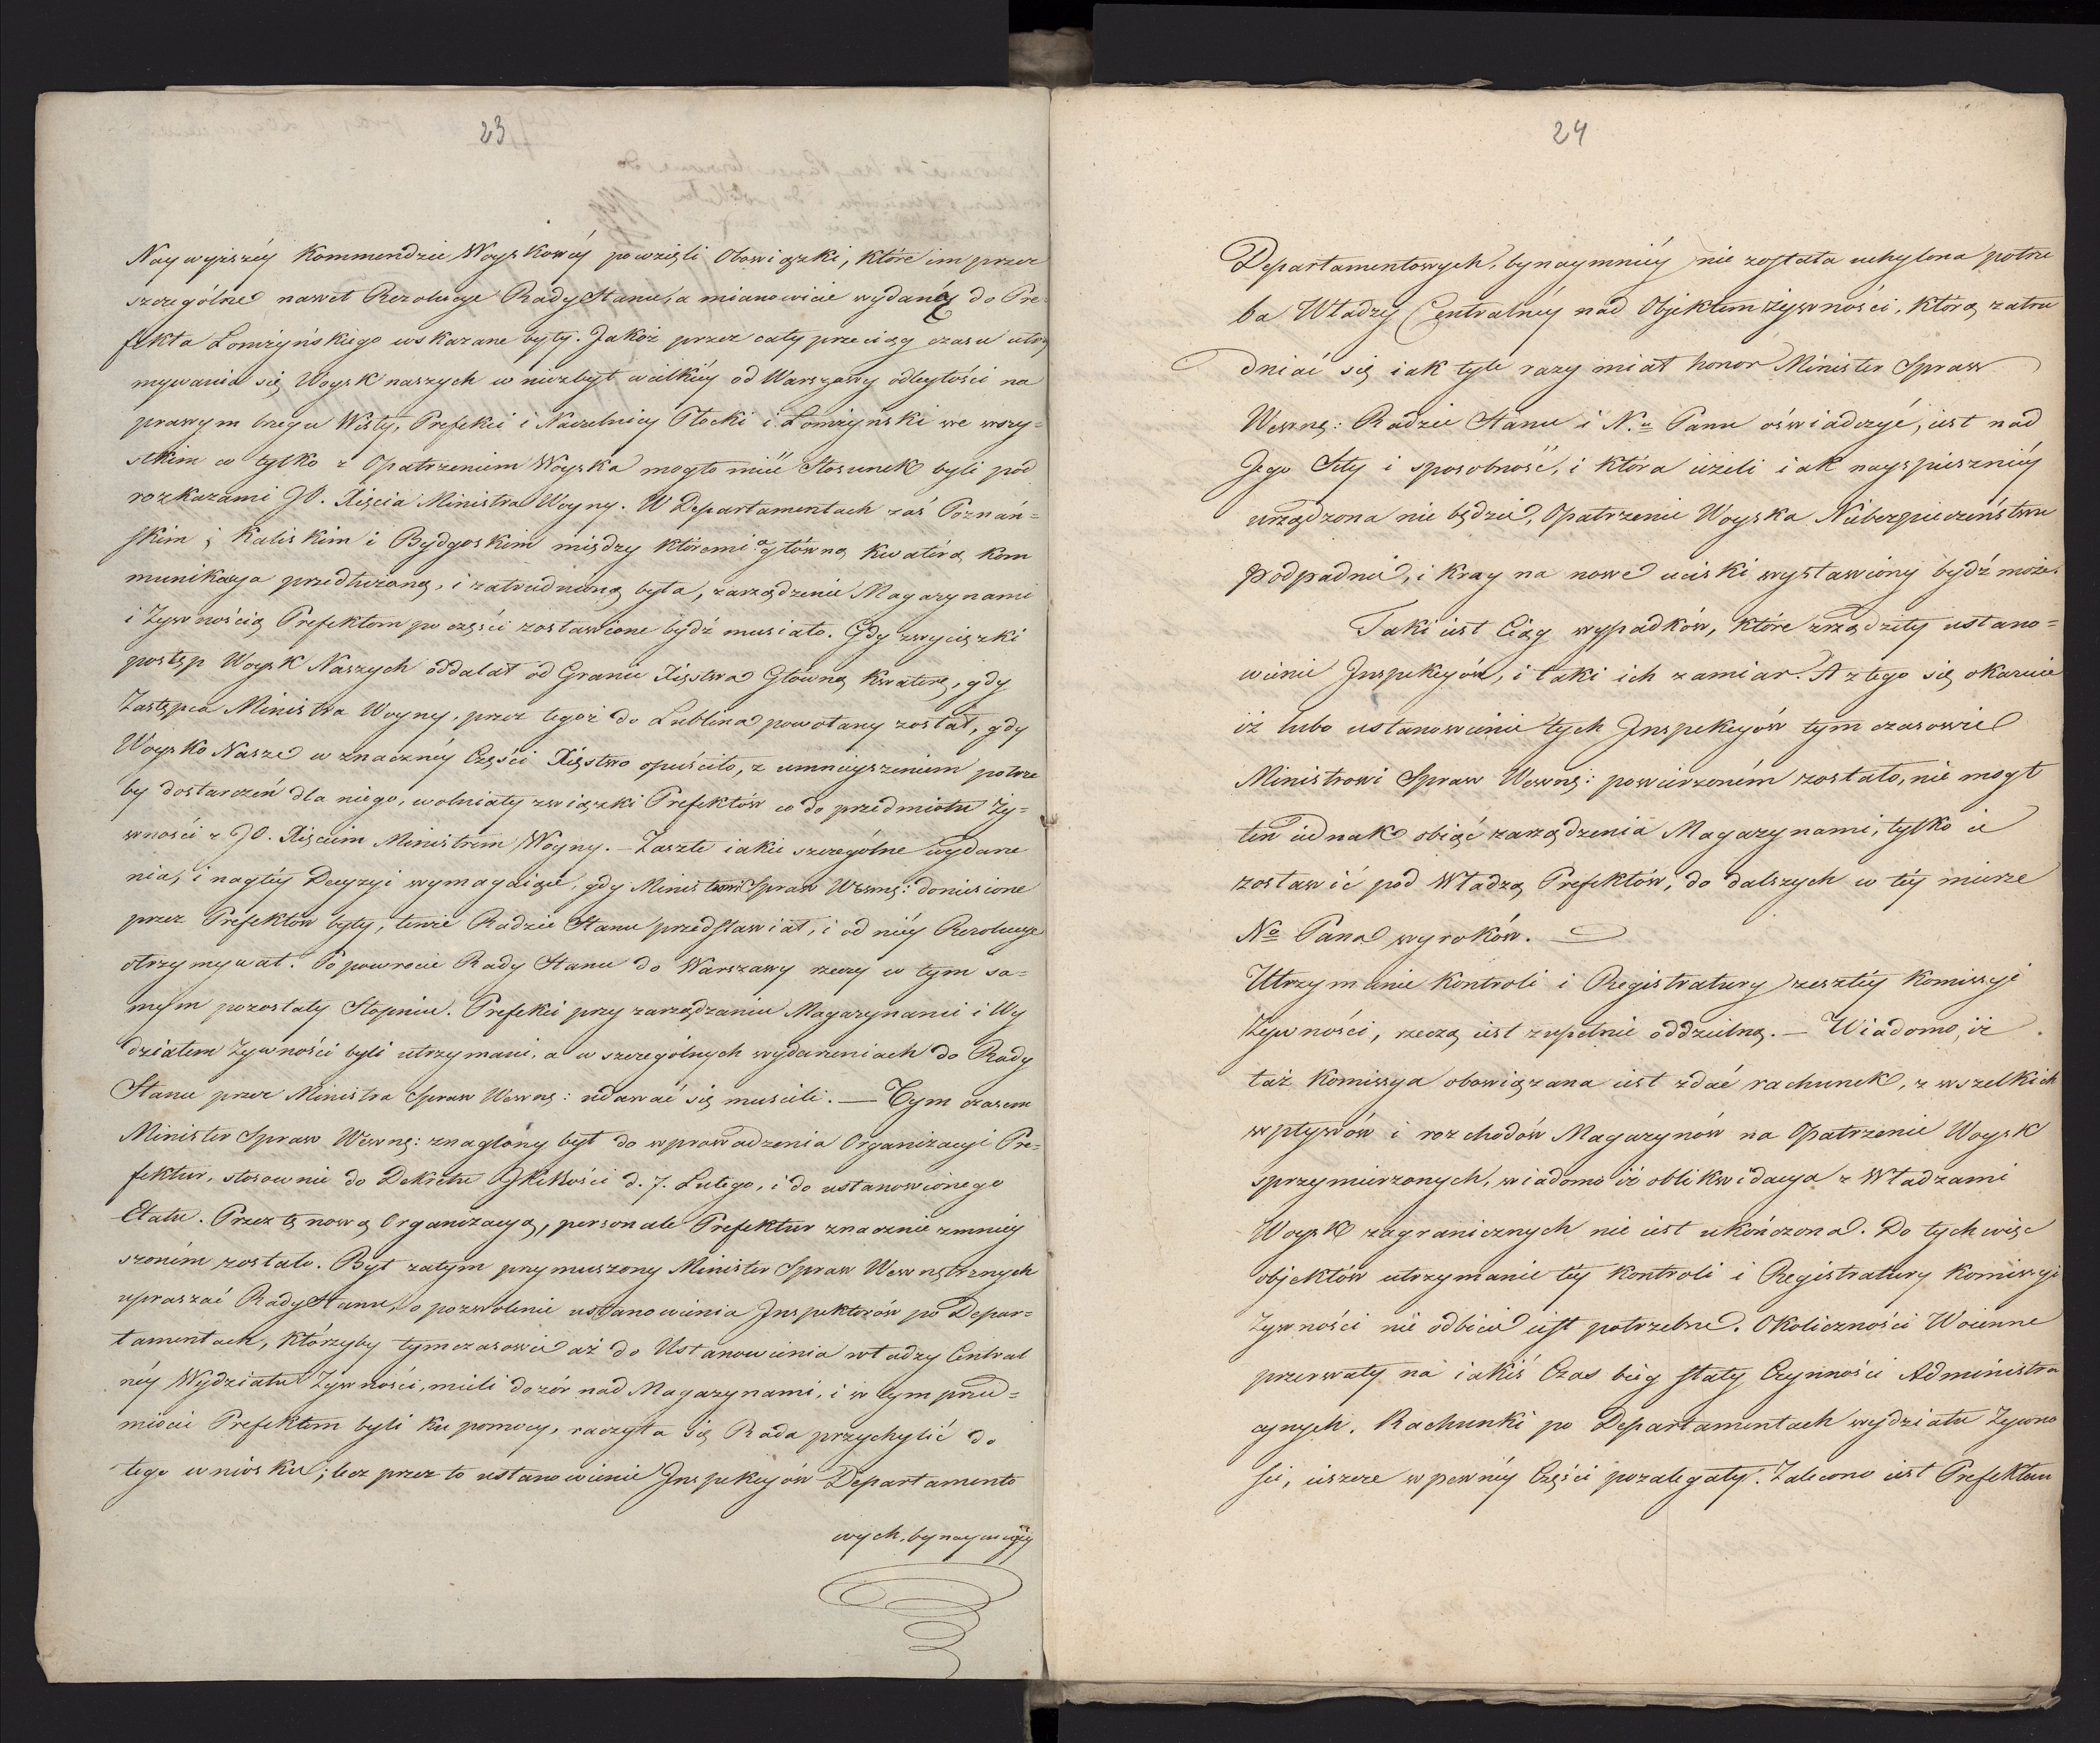 23
Naywyższéy Kommendzie Woyskowéy powzięli Obowiązki, które im przez
szczególne nawet Rezolucye Rady Stanu, a mianowicie wydanéy do Pre-
fekta Łomżyńskiego wskazane były. Jakoż przez cały przeciąg czasu utrzy
mywania się Woysk naszych w niezbyt wielkiéy od Warszawy odległości na
prawym brzegu Wisły, Prefekci i Naczelnicy Płocki i Łomżyński we wszy-
stkim co tylko z Opatrzeniem Woyska mogło mieć Stosunek byli pod
rozkazami JO. Xięcia Ministra Woyny. W Departamentach zaś Poznań-
skim, Kaliskim i Bydgoskim między któremi a główną Kwaterą kom
munikacya przedłużoną, i zatrudnioną była, zarządzenie Magazynami
i Żywnością Prefektom po części zostawione bydź musiało. Gdy zwycięzki
postęp Woysk Naszych oddalał od Granic Xięstwa Główną Kwaterę, gdy
Zastępca Ministra Woyny, przez tegoż do Lublina powołany został, gdy
Woysko Nasze w znacznéy Części Xięstwo opuściło, z umnieyszeniem potrze
by dostarczeń dla niego, wolniały związki Prefektów co do przedmiotu Ży-
wności z JO. Xięciem Ministrem Woyny. – Zaszłe iakie szczególne wydarze
nia, i nagłéy Decyzyi wymagaiące, gdy Ministrowi Spraw Wewnę: doniesione
przez Prefektów były, tenże Radzie Stanu przedstawiał, i od niéy Rezolucye
otrzymywał. Po powrocie Rady Stanu do Warszawy rzeczy w tym sa-
mym pozostały Stopniu. Prefekci przy zarządzaniu Magazynami i Wy
działem Żywności byli utrzymani, a w szczególnych wydarzeniach do Rady
Stanu przez Ministra Spraw Wewnę: udawać się musieli. — Tym czasem
Minister Spraw Wewnę: znaglony był do wprowadzenia Organizacyi Pre-
fektur, stosownie do Dekretu JKMości d. 7. Lutego, i do ustanowionego
Etatu. Przez tę nową Organizacyą, personale Prefektur znacznie zmniey
szoném zostało. Był zatym przymuszony Minister Spraw Wewnętrznych
upraszać Rady Stanu, o pozwolenie ustanowienia Inspektorów po Depar-
tamentach, którzyby tymczasowie aż do Ustanowienia władzy Central
néy Wydziału Żywności, mieli dozór nad Magazynami, i w tym przed-
miocie Prefektom byli ku pomocy, raczyła się Rada przychylić do
tego wniosku; lecz przez to ustanowienie Inspekcyów Departamento
wych, bynaymniéy
24
Departamentowych, bynaymniéy nie została uchylona potrze
ba Władzy Centralnéy nad Objektem żywności, którą zatru
dniać się iak tyle razy miał honor Minister Spraw
Wewnę: Radzie Stanu i N.u Panu oświadczyć, iest nad
Jego Siły i sposobność, i która ieżeli iak nayspieszniéy
urządzona nie będzie, Opatrzenie Woyska Niebezpieczeństwu
podpadnie, i Kray na nowe uciski wystawiony bydź może.
Taki iest Ciąg wypadków, które zrządziły ustano-
wienie Inspekcyów, i taki ich zamiar. A z tego się okazuie
iż lubo ustanowienie tych Inspekcyów tymczasowie
Ministrowi Spraw Wewnę: powierzoném zostało, nie mógł
ten iednak obiąć zarządzenia Magazynami, tylko ie
zostawić pod Władzą Prefektów, do dalszych w téy mierze
No Pana wyroków.
Utrzymanie Kontroli i Registratury zeszłéy Komissyi
Żywności, rzeczą iest zupełnie oddzielną. — Wiadomo, iż
taż Komissya obowiązana iest zdać rachunek, z wszelkich
wpływów i rozchodów Magazynów na Opatrzenie Woysk
sprzymierzonych, wiadomo iż oblikwidacya z Władzami
Woysk zagranicznych nie iest ukończona. Do tych więc
objektów utrzymanie téy Kontroli i Registratury Komissyi
Żywności nie odbicie iest potrzebne. Okoliczności Woienne
przerwały na iakiś Czas bieg stały Czynności Administra
cyinych. Rachunki po Departamentach wydziału Żywno
ści, ieszcze w pewnéy Części pozalegały. Zalecono iest Prefektom